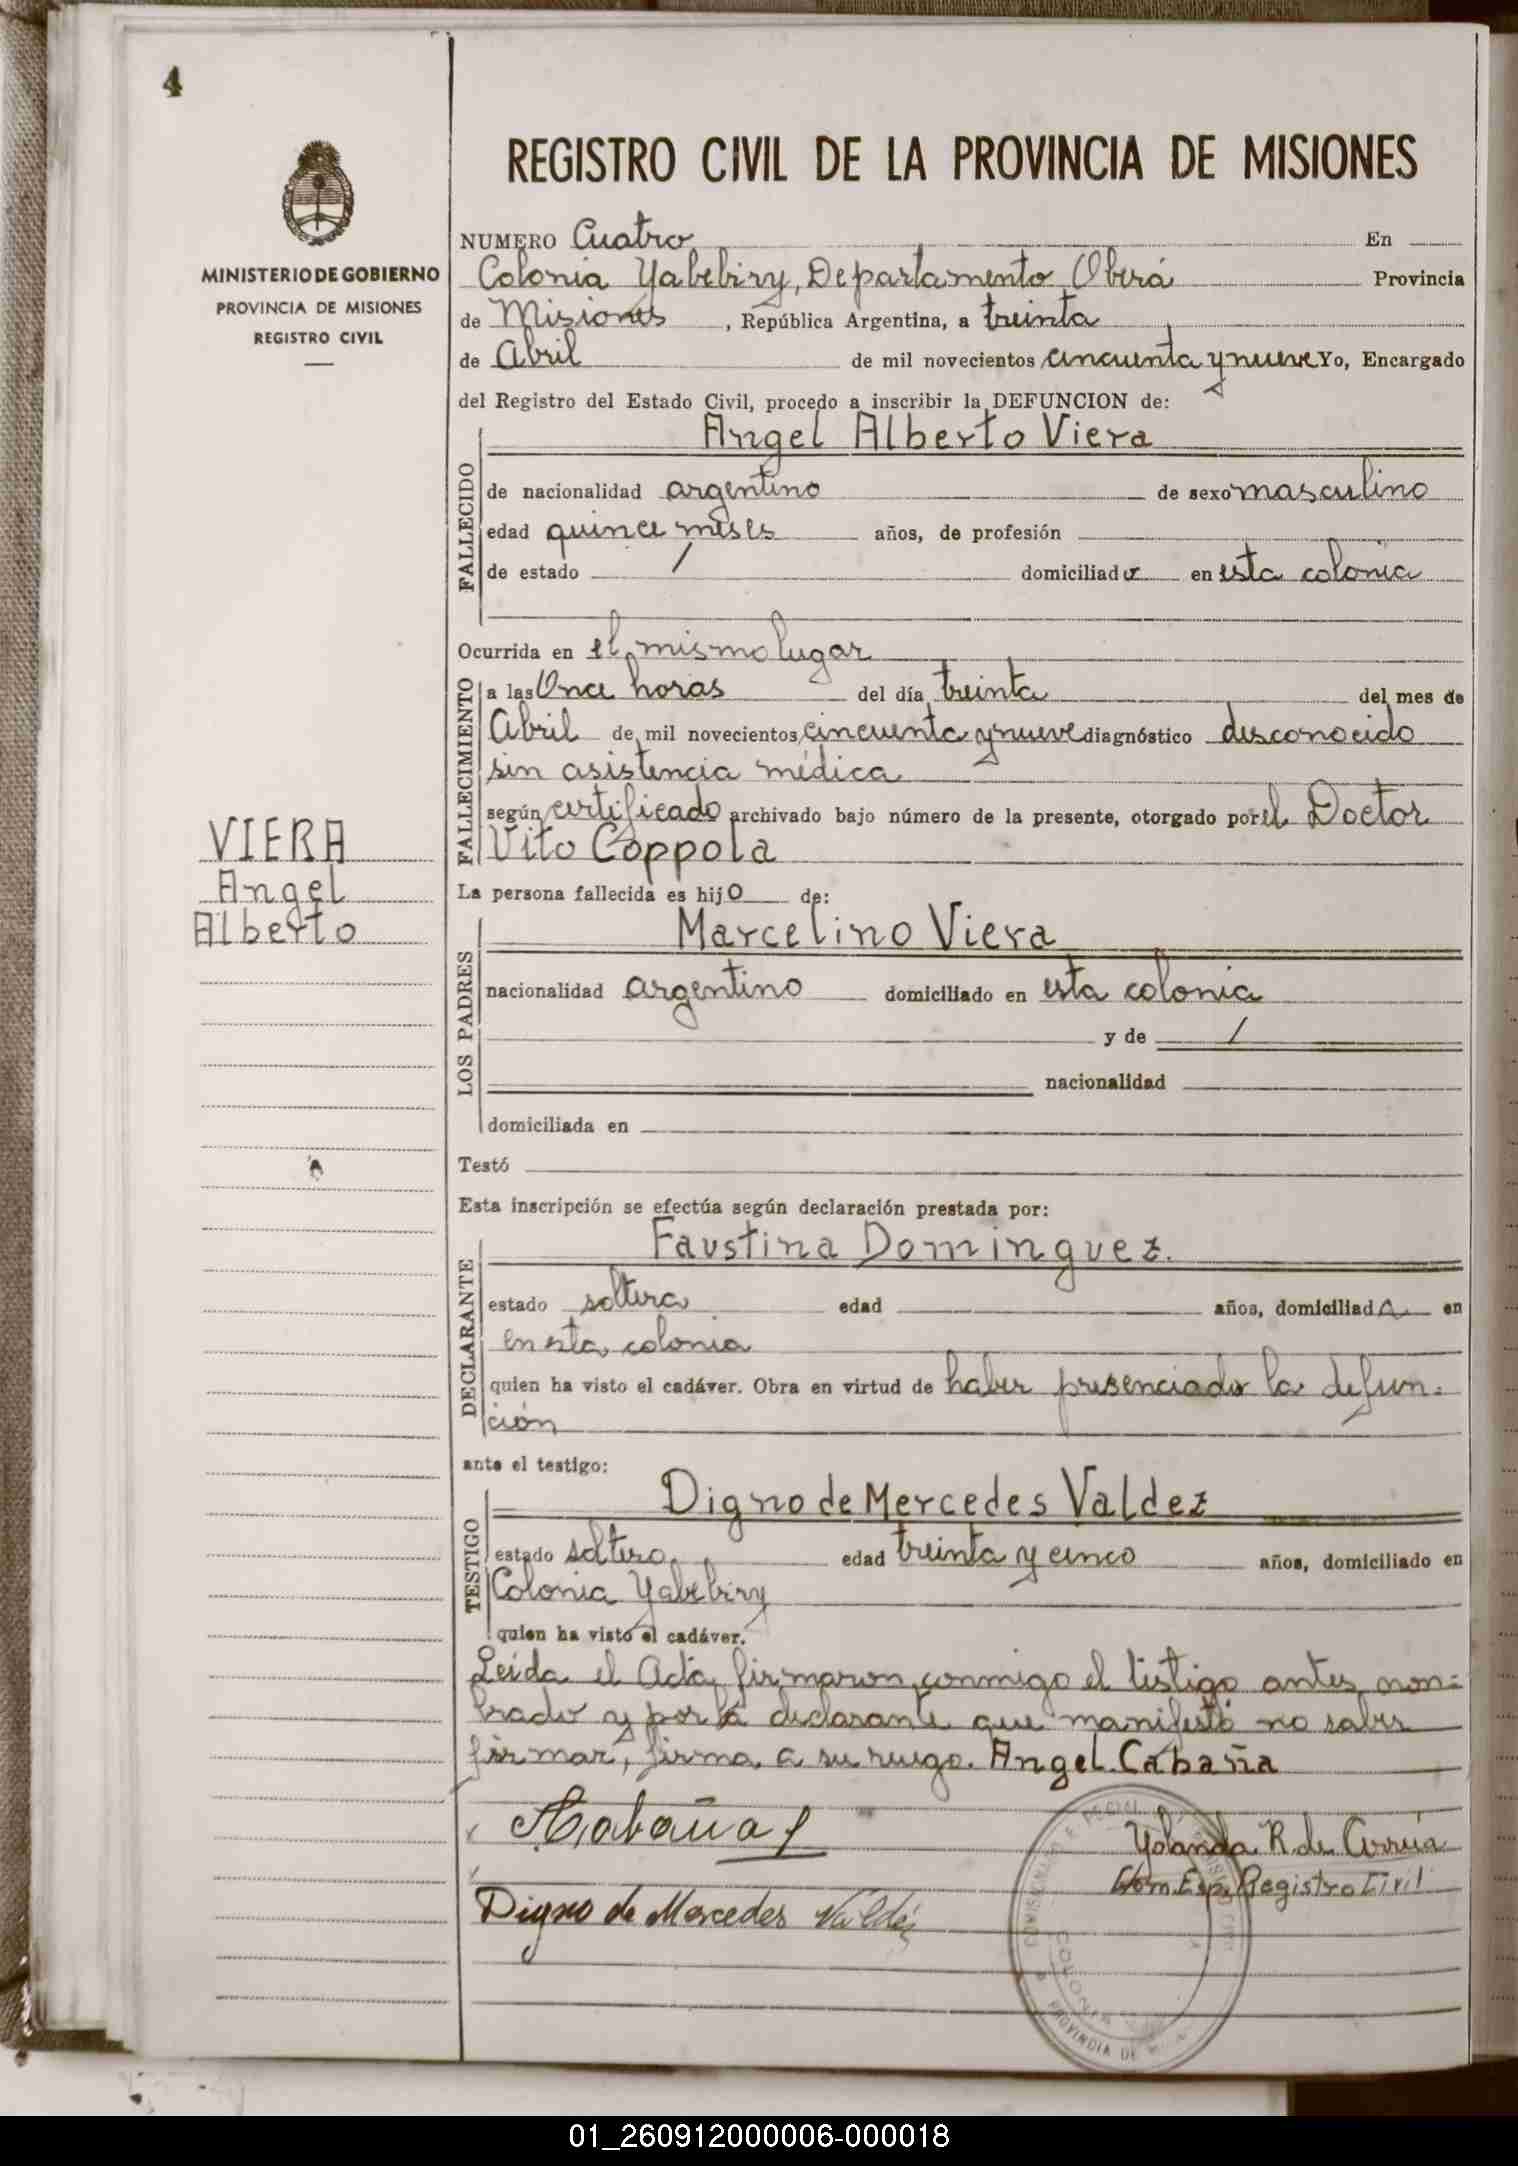 4
MINISTERIO DE GOBIERNO
PROVINCIA DE MISIONES
REGISTRO CIVIL
VIERA
Angel
Alberto
REGISTRO CIVIL DE LA PROVINCIA DE MISIONES
NUMERO Cuatro En
Colonia Yabebiry, Departamento Oberá Provincia
de Misiones, República Argentina, a treinta
de Abril de mil novecientos cincuenta y nueve Yo, Encargado
del Registro del Estado Civil, procedo a inscribir la DEFUNCION de:
FALLECIDO
Angel Alberto Viera
de nacionalidad argentino de sexo masculino
edad quince meses años, de profesión
de estado / domiciliado en esta colonia
Ocurrida en el mismo lugar
FALLECIMIENTO
a las Once horas del día treinta del mes de
Abril de mil novecientos cincuenta y nueve diagnóstico desconocido
sin asistencia médica
según certificado archivado bajo número de la presente, otorgado por el Doctor
Vito Coppola
La persona fallecida es hijo de:
LOS PADRES
Marcelino Viera
nacionalidad argentino domiciliado en esta colonia
y de /
nacionalidad
domiciliada en
Testó
Esta inscripción se efectúa según declaración prestada por:
DECLARANTE
Faustina Dominguez.
estado soltera edad años, domiciliada en
en esta colonia
quien ha visto el cadáver. Obra en virtud de haber presenciado la defun-
ción
ante el testigo:
TESTIGO
Digno de Mercedes Valdez
estado soltero edad treinta y cinco años, domiciliado en
Colonia Yabebiry
quien ha visto el cadáver.
Leida el Acta, firmaron conmigo el testigo antes nom=
brado y por la declarante que manifestó no saber
firmar, firma a su ruego. Angel Cabaña
ACabaña
Yolanda R. de Corrúa
Com. Esp. Registro Civil
Digno de Mercedes Valdéz
PROVINCIA DE
COLONIA
01_260912000006-000018